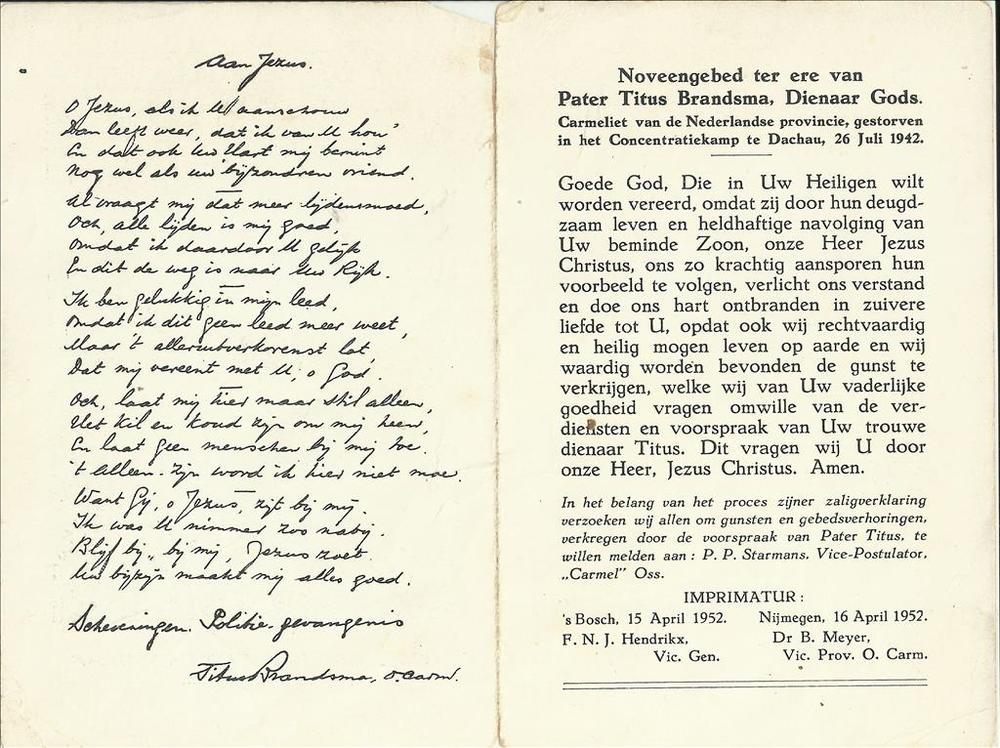 Aan Jezus.
O Jezus, als ik U aanschouw
Dan leeft weer, dat ik van U hou'
En dat ook Uw Hart mij bemint
Nog wel als uw bijzondren vriend.
Al vraagt mij dat meer lijdensmoed,
Och, alle lijden is mij goed,
Omdat ik daardoor U gelijk
En dit de weg is naar Uw Rijk.
Ik ben gelukkig in mijn leed,
Omdat ik dit geen leed meer weet,
Maar 't alleruitverkorenst lot,
Dat mij vereent met U, o God.
Och, laat mij hier maar stil alleen,
Het kil en koud zijn om mij heen,
En laat geen menschen bij mij toe.
't Alleen-zijn word ik hier niet moe.
Want Gij, o Jezus, zijt bij mij.
Ik was U nimmer zoo nabij.
Blijf bij, bij mij, Jezus zoet.
Uw bijzijn maakt mij alles goed.
Scheveningen. Politie-gevangenis
Titus Brandsma, O.Carm.
Noveengebed ter ere van
Pater Titus Brandsma, Dienaar Gods.
Carmeliet van de Nederlandse provincie, gestorven
in het Concentratiekamp te Dachau, 26 Juli 1942.
Goede God, Die in Uw Heiligen wilt
worden vereerd, omdat zij door hun deugd-
zaam leven en heldhaftige navolging van
Uw beminde Zoon, onze Heer Jezus
Christus, ons zo krachtig aansporen hun
voorbeeld te volgen, verlicht ons verstand
en doe ons hart ontbranden in zuivere
liefde tot U, opdat ook wij rechtvaardig
en heilig mogen leven op aarde en wij
waardig worden bevonden de gunst te
verkrijgen, welke wij van Uw vaderlijke
goedheid vragen omwille van de ver-
diensten en voorspraak van Uw trouwe
dienaar Titus. Dit vragen wij U door
onze Heer, Jezus Christus. Amen.
In het belang van het proces zijner zaligverklaring
verzoeken wij allen om gunsten en gebedsverhoringen,
verkregen door de voorspraak van Pater Titus, te
willen melden aan : P. P. Starmans, Vice-Postulator,
„Carmel" Oss.
IMPRIMATUR :
's Bosch, 15 April 1952. Nijmegen, 16 April 1952.
F. N. J. Hendrikx, Dr B. Meyer,
Vic. Gen. Vic. Prov. O. Carm.